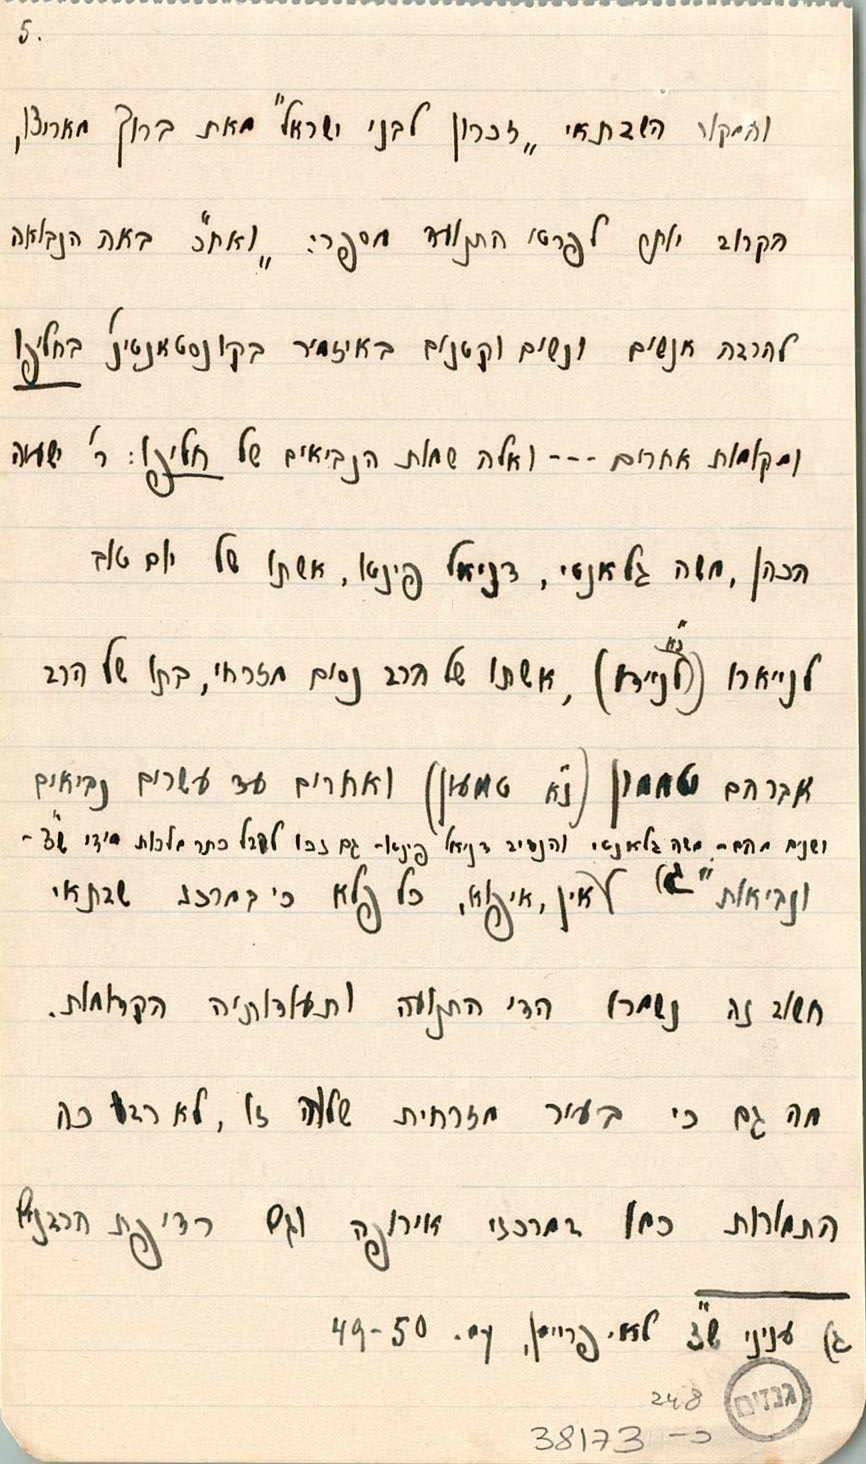 5.
והמקור השבתאי „זכרון לבני ישראל" מאת ברוך מאריצו,
הקרוב יותר לפרטי התנועה מספר: „ואח"כ באה הנבואה
להרבה אנשים ונשים וקטנים באיזמיר בקונסטאנטינ' בחליפו
ומקומות אחרים --- ואלה שמות הנביאים של חליפו: ר' ישעיה
הכהן, משה גלאנטי, דניאל פינטו, אשתו של יום טוב
לנייארו (נ"א לנידא), אשתו של הרב נסים מזרחי, בתו של הרב
אברהם טממון (נ"א טמעון) ואחרים עד עשרים נביאים
ושנים מהם – משה גלאנטי והנדיב דניאל פינטו – גם זכו לקבל כתר מלכות מידי ש"צ –
ונביאות" ג) אין, איפוא, כל פלא כי במרכז שבתאי
חשוב זה נשמרו הדי התנועה ותעודותיה הקדומות.
מה גם כי בעיר מזרחית שלוה זו, לא רבו כה
התמורות כמו במרכזי אירופה וגם רדיפת הרבנים
ג) עניני ש"צ לא. פריימן, עמ. 49-50
גנזים
248
כ- 38173